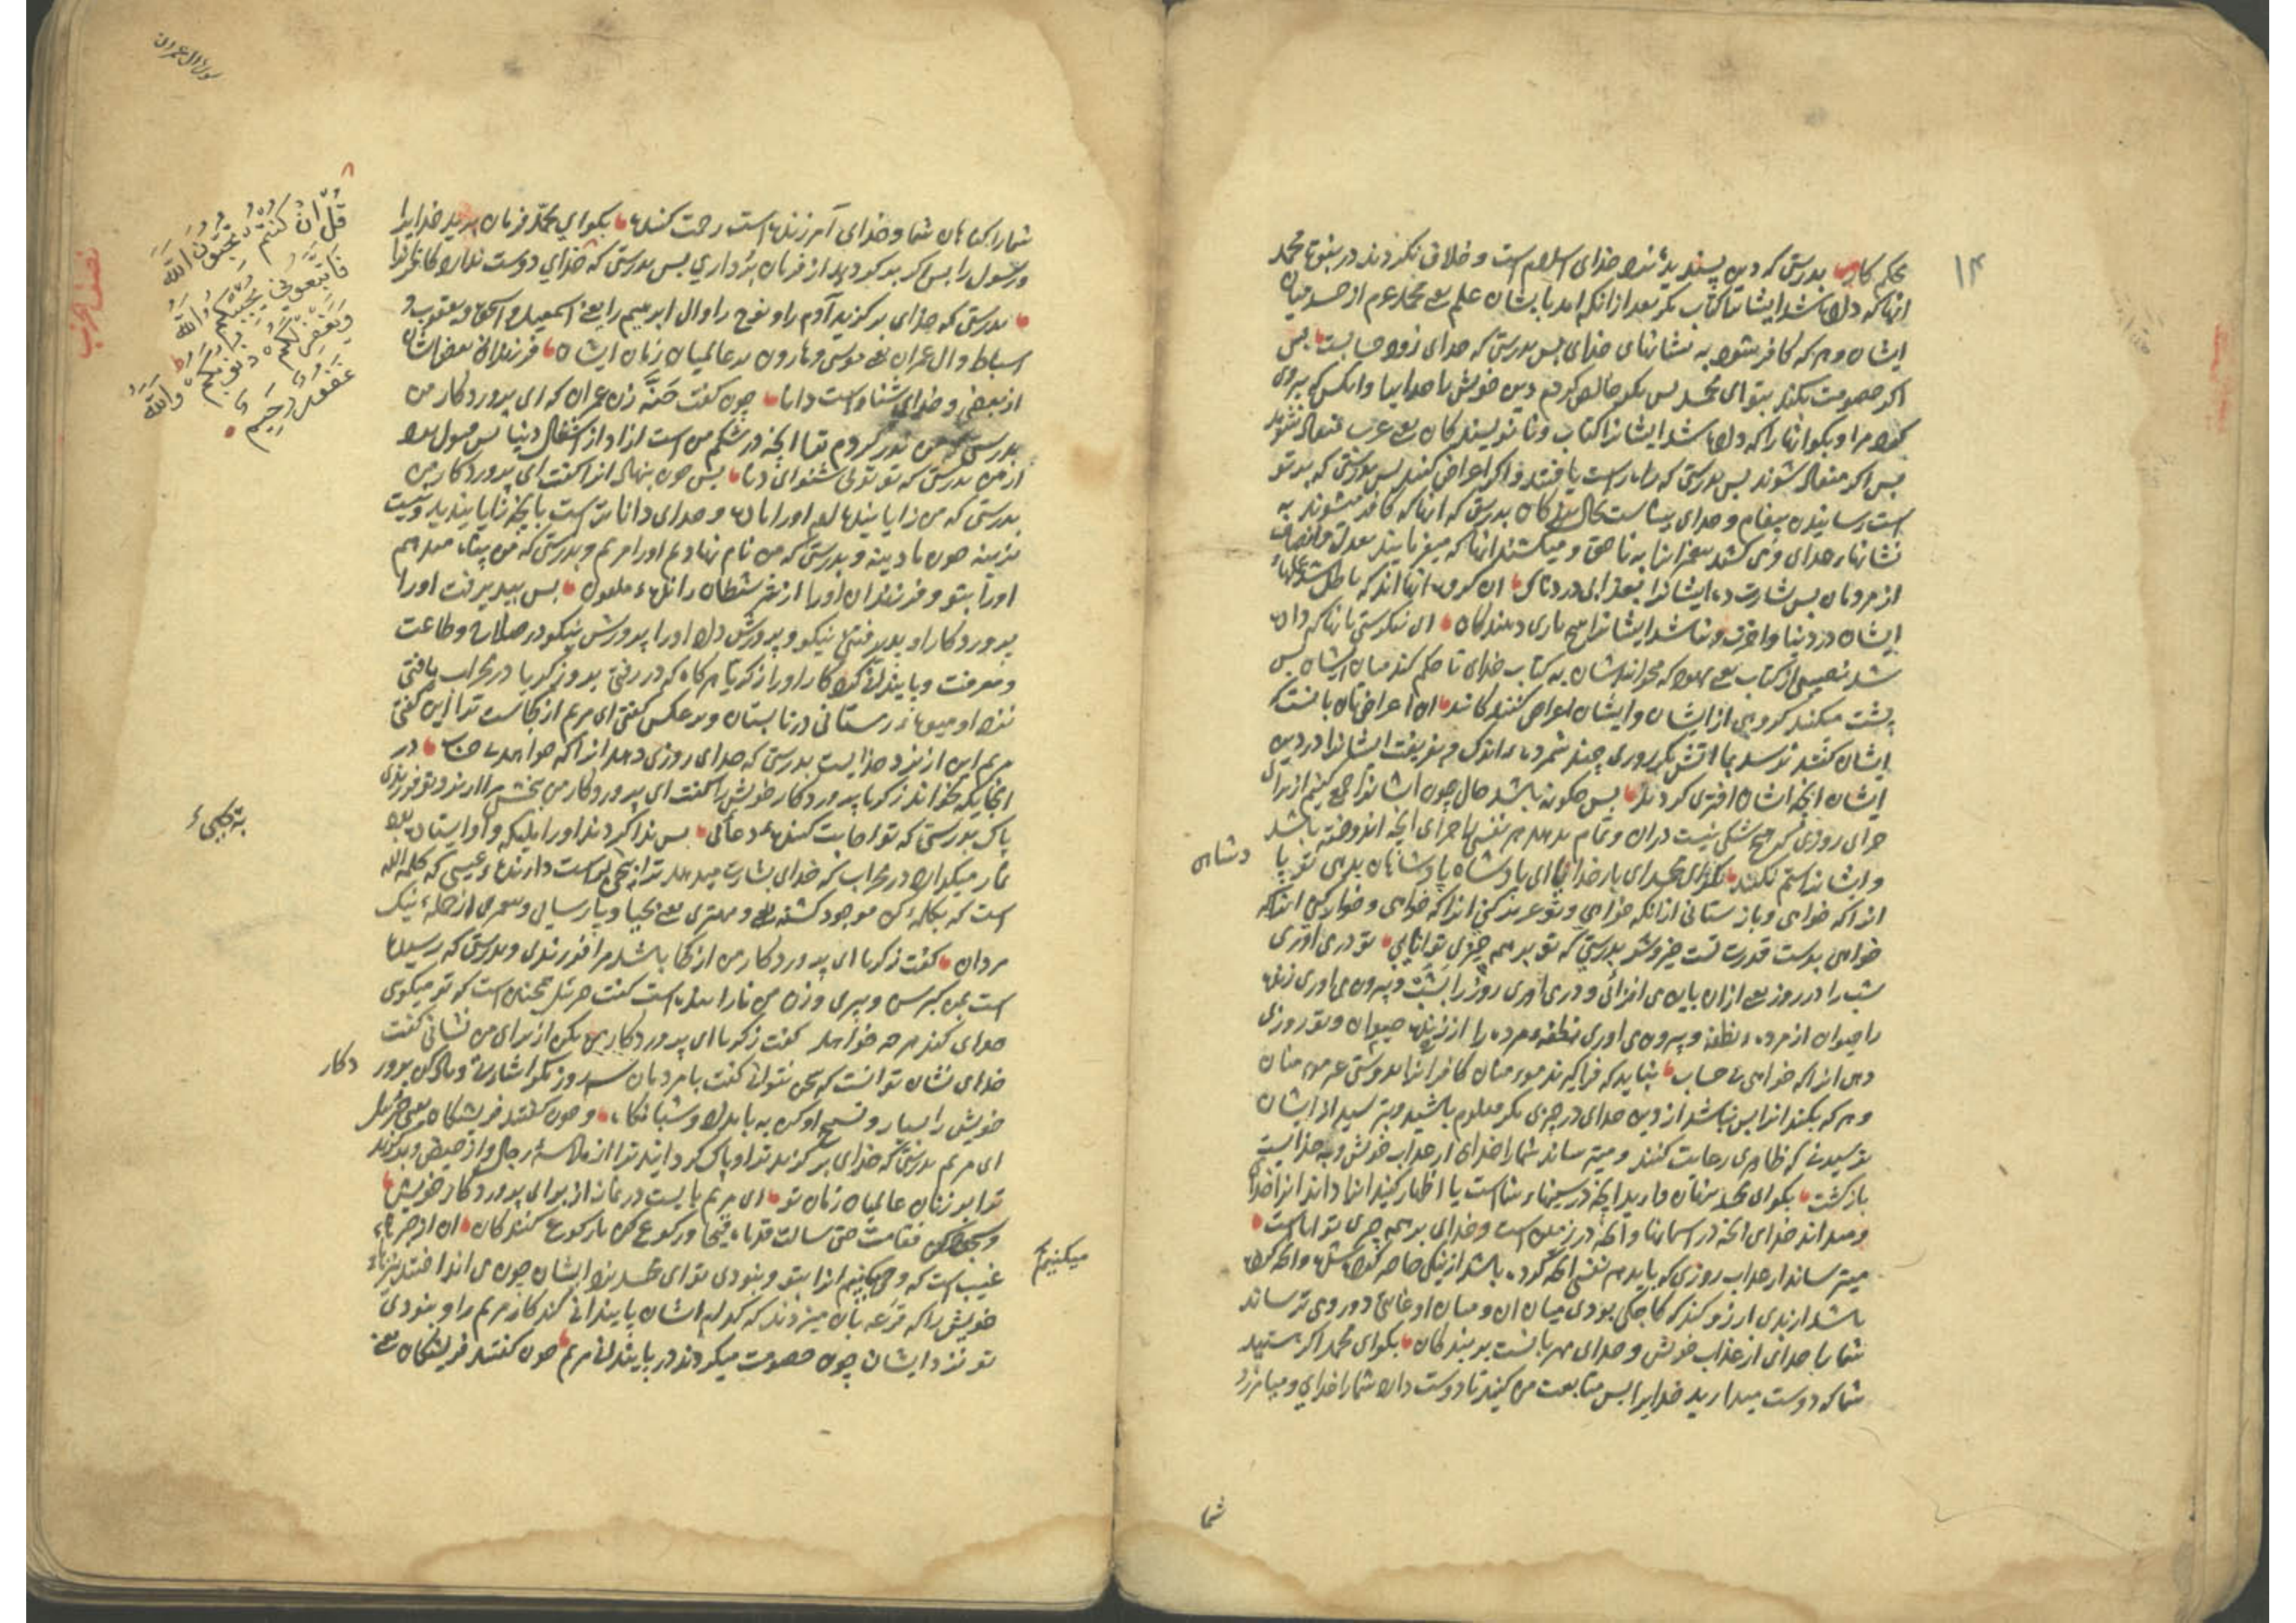 ۱۴
محکم کار بدرستی که دین پسندیده نزد خدای اسلام است و خلاف نکردند در نبوت محمد
انها که داده شد ایشانرا کتاب مکر بعد از انکه امد بایشان علم یعنی محمد عم از حسد میان
ایشان و هر که کافر شود به نشانهای خدای بس بدرستی که خدای زود حسابست بس
اکر خصومت بکنند بتو ای محمد بس بکو خالص کردم دین خویش با خدا و انکس که پیروی
کند مرا و بکو انها را که داده شد ایشانرا کتاب و نا نویسندکان یعنی عرب
بس اکر منقاد شوند بس بدرستی که راه راست یافتند و اکر اعراض کنند بس بدرستی که بر تو
است رسانیدن پیغام و خدای بیناست بحال بندکان بدرستی که انها که کافر میشوند به
نشانهاء خدای و می کشند پیغمبرانرا به ناحق و میکشند انها که میفرمایند بعدل و انصاف
از مردمان بس بشارت ده ایشانرا بعذابی دردناک ان کروه انها اند که باطل شد عملهاء
ایشان در دنیا و اخرت و نباشد ایشانرا هیچ یاری دهندکان ای ننکرستی بانها که داده
شد نصیبی از کتاب یعنی یهود که میخوانندشان به کتاب خدای تا حکم کند میان ایشان بس
پشت میکند کروهی از ایشان و ایشان اعراض کنندکانند ان اعراضشان بانست که
ایشان کفتند نرسد بما اتش مکر روزی چند شمرده اندک و بفریفت ایشانرا در دین
ایشان انچه ایشان افتری کردند بس چکونه باشد حال چون ایشانرا جمع کنیم از برای
جزای روزی که هیچ شکی نیست دران و تمام بدهد هر نفسی را جزای انچه اندوخته باشد
و ایشانرا ستم نکنند بکو ای محمد ای بار خدایا ای بادشاه پادشاهان بدهی تو پا
دشاهی
انرا که خواهی و باز ستانی از انکه خواهی و تو عزیز کنی انرا که خواهی و خوار کنی انرا که
خواهی بدست قدرت تست خیر و شر بدرستی که تو بر همه چیزی توانایی تو در می اوری
شب را در روز یعنی ازان باین می افزائی و در می اوری روز را بشب و بیرون می اوری زنده
را چون حیوان از مرده نطفه و بیرون می اوری نطفه مرده را از زنده حیوان و تو روزی
دهی انرا که خواهی بی حساب نباید که فراکیرند مومنان کافرانرا بدوستی غیر مومنان
و هر که بکند انرا بس نباشد از دین خدای در چیزی مکر معلوم باشید و بترسید از ایشان
ترسیدنی که ظاهری رعایت کنند و میترساند شما را خدای از عذاب خویش و به خدایست
بازکشت بکو ای محمد پنهان دارید انچه در سینهاء شماست یا اظهار کنید انرا داند انرا خدای
و میداند خدای انچه در اسمانها و انچه در زمین است و خدای بر همه چیزی تواناست
میترساند از عذاب روزی که بیابد هر نفسی انچه کرده باشد از نیکی حاضر کرده شده و انچه کرده
باشد از بدی ارزو کند که کاجکی بودی میان ان و میان او غایتی دور و می ترساند
شما را خدای از عذاب خویش و خدای مهربانست بر بندکان بکو ای محمد اکر هستید
شما که دوست میدارید خدایرا بس متابعت من کنید تا دوست دارد شما را خدای و بیامرزد
شما
سورة ال عمران
شما را کناهان شما و خدای آمرزنده است رحمت کننده بکو ای محمد فرمان برید خدایرا
و رسول را بس اکر بر کردید از فرمان برداری بس بدرستی که خدای دوست ندارد کافرانرا
بدرستی که خدای برکزید آدم را و نوح را و ال ابرهیم را یعنی اسمعیل و اسحق و یعقوب و
اسباط و ال عمران یعنی موسی و هارون بر عالمیان زمان ایشان فرزندان بعضی ایشان
از بعضی و خدای شنواست دانا چون کفت حنّه زن عمران که ای پروردکار من
بدرستی که من نذر کردم ترا انچه در شکم من است ازاد از اشغال دنیا بس قبول کن
از من بدرستی که تو توئی شنوای دانا بس چون بنهاد انرا کفت ای پروردکار من
بدرستی که من زاییدم او را ماده و خدای داناتر است بانچه زایید و نیست
نرینه چون مادینه و بدرستی که من نام نهادم او را مریم و بدرستی که من پناه میدهم
او را بتو و فرزندان او را از شر شیطان رانده ملعون بس بپذیرفت او را
پروردکار او پذیرفتنی نیکو و پرورش داد او را پرورش نیکو در صلاح و طاعت
و معرفت و پایندانی کرد کار او را زکریا هر کاه که در رفتی برو زکریا در محراب یافتی
نزد او میوهاء زمستانی در تابستان و بر عکس کفتی ای مریم از کجاست ترا این کفتی
مریم این از نزد خدایست بدرستی که خدای روزی دهد انرا که خواهد بی حساب در
انجایکه بخواند زکریا پروردکار خویش را کفت ای پروردکار من ببخش مرا از نزد تو فرزندی
پاک بدرستی که تو اجابت کننده دعائی بس ندا کردند او را ملیکه و او ایستاده بود
نماز میکزارد در محراب که خدای بشارت میدهد ترا به یحیی راست دارنده عیسی که کلمة الله
است که بکلمه کن موجود کشته و مهتری یعنی یحیی و پارسایی و پیغمبری از جمله نیک
مردان کفت زکریا ای پروردکار من از کجا باشد مرا فرزندی و بدرستی که برسیده
است بمن کبر سن و پیری و زن من نازاینده است کفت جبرئیل همچنین است که تو میکوی
خدای کند هر چه خواهد کفت زکریا ای پروردکار من بکن از برای من نشانی کفت
خدای نشان تو انست که سخن نتوانی کفت با مردمان سه روز مکر اشارتی و یاد کن پرور
دکار
خویش را بسیار و تسبیح او کن به بامداد و شبانکاه و چون کفتند فریشتکان یعنی جبرئیل
ای مریم بدرستی که خدای برکزید ترا و پاک کردانید ترا از ملامسهٔ رجال و از حیض و برکزید
ترا بر زنان عالمیان زمان تو ای مریم بایست در نماز از برای پروردکار خویش
و سجود کن فقامت حتی سالت قدماء قیحا و رکوع کن با رکوع کنندکان ان از خبرهاء
غیب است که وحی میکنیم انرا بتو و نبودی تو ای محمد نزد ایشان چون می انداختند تیرهاء
میکنیم
خویش را که قرعه بان میزدند که کدام ایشان پایندانی کند کار مریم را و نبودی
تو نزد ایشان چون خصومت میکردند در پایندانی مریم چون کفتند فریشتکان یعنی
قُلْ اِنْ كُنْتُمْ تُحِبُّونَ اللّٰهَ
فَاتَّبِعُونِي يُحْبِبْكُمُ اللّٰهُ
وَيَغْفِرْ لَكُمْ ذُنُوبَكُمْ وَاللّٰهُ
غَفُورٌ رَحِيمٌ
نصف الحزب